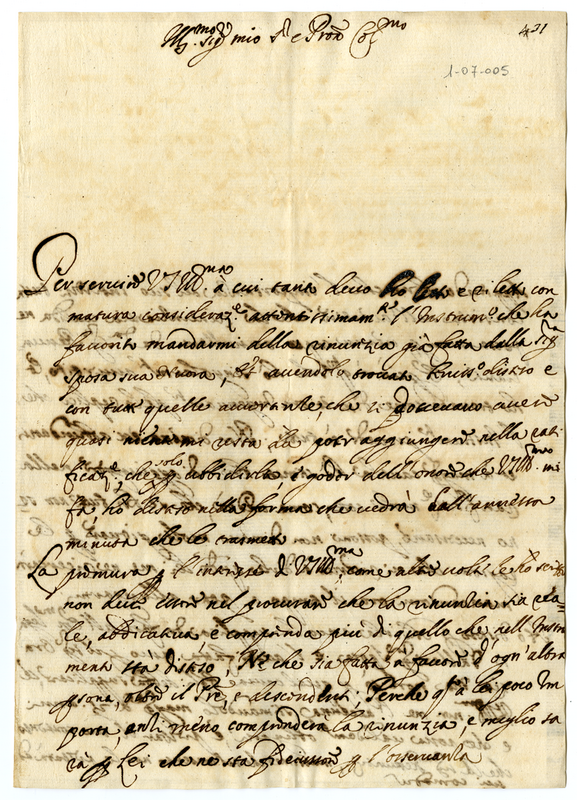 Ill.mo Sig.r mio S.r e Pron Col.mo
431
1-07-005
Per servire VS Ill.ma à cui tanto devo ho letto e riletto con
matura consideraz.e attentissimam.te l'Instrum.o che ha
favorito mandarmi della rinunzia già fatta dalla Sig.ra
sposa sua Nuora, et avendolo trovato disteso e
con tutte quelle che si potevano avere
quasi niente mi resta da poter aggiungere nella rati
ficaz.e, che solo p ubbidirla e goder dell'onore che VS Ill.ma mi
fà ho disteso nella forma che vedrà dall'annessa
minuta che le trasmetto
La premura p l'interesse di VS Ill.ma, come altre volte le ho scritto
non deve essere nel procurare che la rinunzia sia
le, abdicativa, e comprenda più di quello che nell'Instru
mento stà disteso, Nè che sia fatta à favore d'ogn'altra
psona, oltre il Pre, e descendenti; Perche q.to à lei poco im
porta, anzi meno comprenderà la rinunzia, e meglio sa
rà p Lei che ne sta p l'osservanza